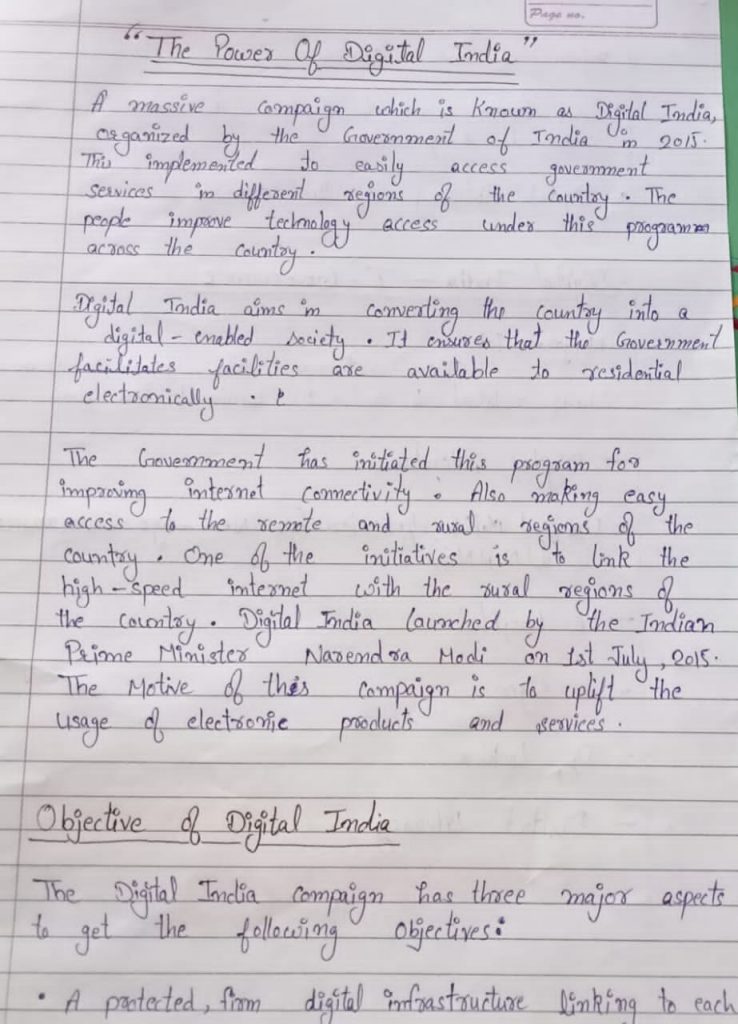 Page no.
"The Power Of Digital India"
A massive campaign which is Known as Digital India,
organized by the Government of India in 2015.
This implemented to easily access government
services in different regions of the country. The
people improve technology access under this programm
across the country.
Digital India aims in converting the country into a
digital-enabled society. It ensures that the Government
facilitates facilities are available to residential
electronically.
The Government has initiated this program for
improving internet connectivity. Also making easy
access to the remote and rural regions of the
country. One of the initiatives is to link the
high-speed internet with the rural regions of
the country. Digital India launched by the Indian
Prime Minister Narendra Modi on 1st July, 2015.
The Motive of this campaign is to uplift the
usage of electronic products and services.
Objective of Digital India
The Digital India campaign has three major aspects
to get the following objectives:
• A protected, firm digital infrastructure linking to each